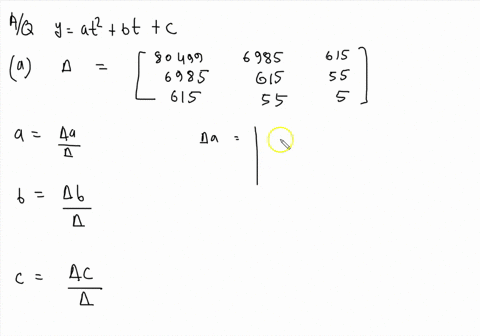 A/Q y = at² + bt + c
(a) Δ = [ 80499 6985 615
6985 615 55
615 55 5 ]
a = Δa/Δ Δa = |
b = Δb/Δ
c = Δc/Δ